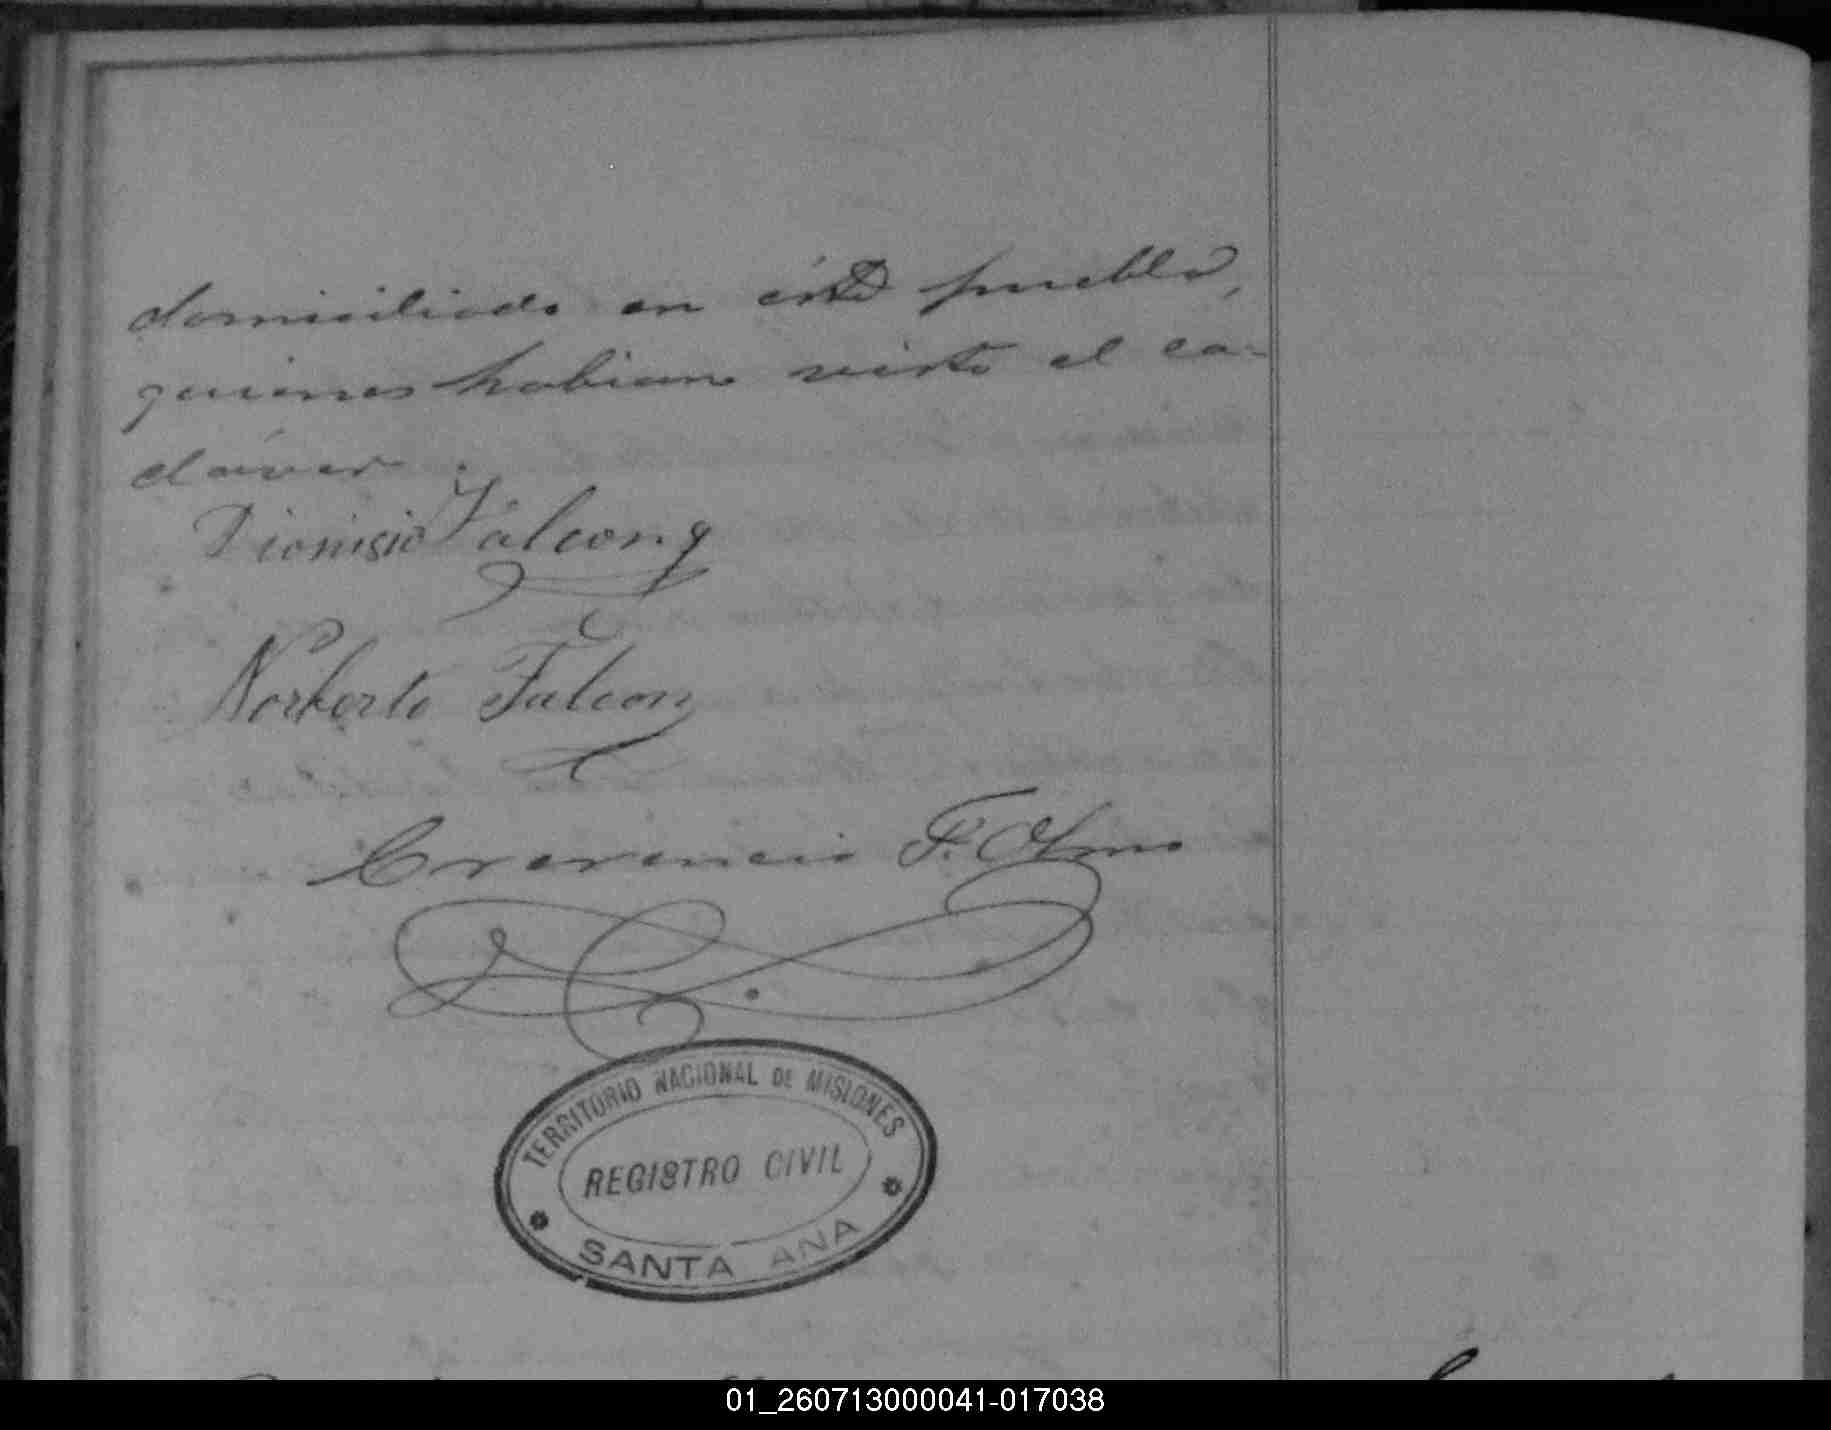 domiciliado en éste pueblo,
quienes habian visto el ca-
dáver.
Dionisio Falcon y
Norberto Falcon
Crecencio F. Olmo
TERRITORIO NACIONAL DE MISIONES
REGISTRO CIVIL
SANTA ANA
01_260713000041-017038